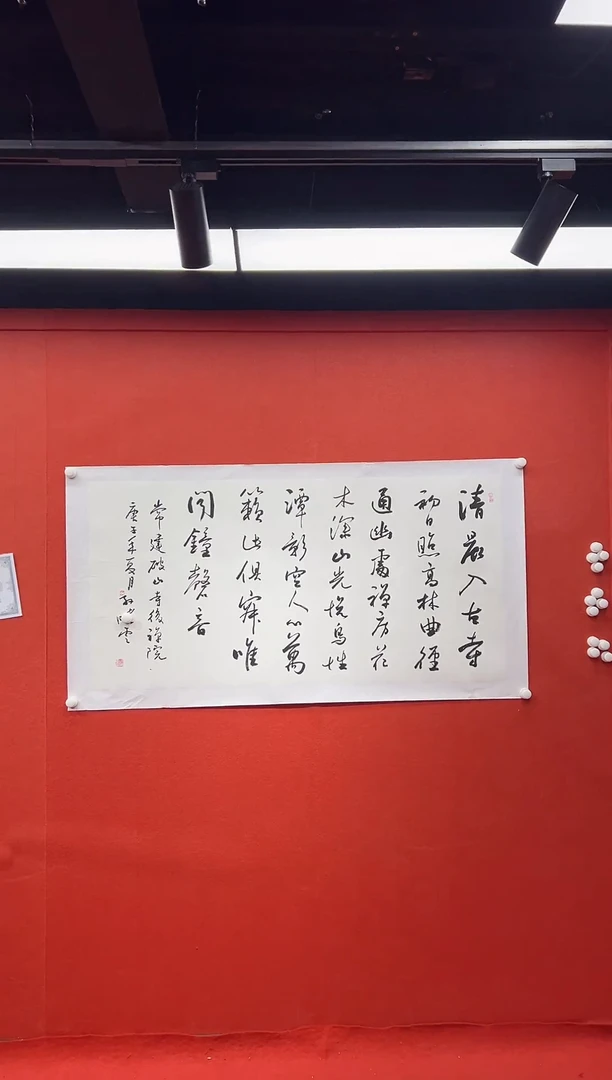 清晨入古寺
初日照高林曲徑
通幽處禪房花
木深山光悦鳥性
潭影空人心萬
籟此俱寂唯
聞鐘磬音
常建破山寺後禪院
庚子年夏月